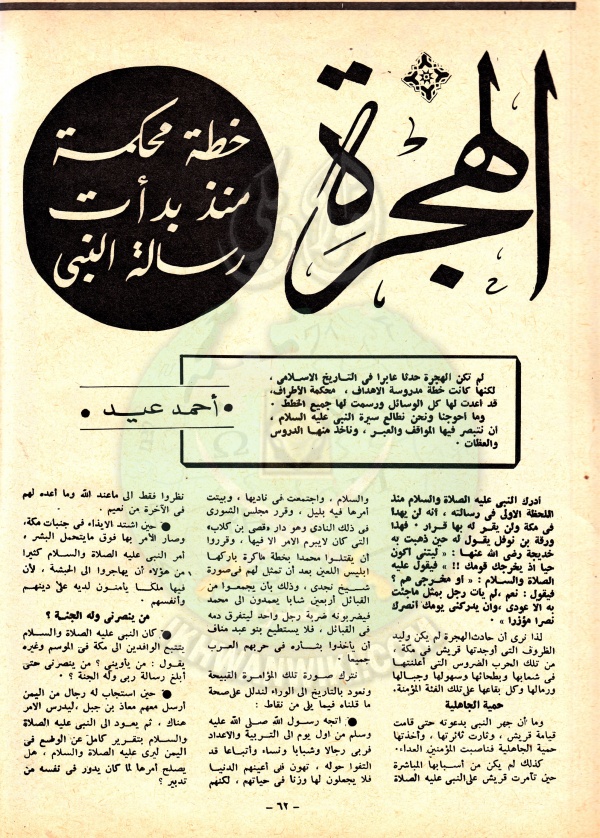 الهجرة
خطة محكمة
منذ بدأت
رسالة النبى
لم تكن الهجرة حدثا عابرا فى التاريخ الاسلامى ،
لكنها كانت خطة مدروسة الاهداف ، محكمة الأطراف،
قد أعدت لها كل الوسائل ورسمت لها جميع الخطط ·
وما أحوجنا ونحن نطالع سيرة النبى عليه السلام ،
ان نتبصر فيها المواقف والعبر ، وناخذ منها الدروس
والعظات ·
• أحمد عيد •
أدرك النبى عليه الصلاة والسلام منذ
اللحظة الاولى فى رسالته ، أنه لن يهدأ
فى مكة ولن يقر له بها قرار · فهذا
ورقة بن نوفل يقول له حين ذهبت به
خديجة رضى الله عنها : « ليتنى أكون
حيا اذ يخرجك قومك !! » فيقول عليه
الصلاة والسلام : « أو مخرجى هم ؟
فيقول : نعم ،لم يأت رجل بمثل ماجئت
به الا عودى ،وان يدركنى يومك أنصرك
نصرا مؤزرا » ·
لذا نرى أن حادث الهجرة لم يكن وليد
الظروف التى أوجدتها قريش فى مكة ،
من تلك الحرب الضروس التى أعلنتها
فى شعابها وبطحائها وسهولها وجبالها
ورمالها وكل بقاعها على تلك الفئة المؤمنة.
حمية الجاهلية
وما أن جهر النبى بدعوته حتى قامت
قيامة قريش ، وثارت ثائرتها ، وأخذتها
حمية الجاهلية فناصبت المؤمنين العداء.
كذلك لم يكن من أسبابها المباشرة
حين تآمرت قريش على النبى عليه الصلاة
والسلام ، واجتمعت فى ناديها ، وبيتت
أمرها فيه بليل ، وقرر مجلس الشورى
فى ذلك النادى وهو دار «قصى بن كلاب»
التى كان لايبرم الامر الا فيها ، وقرروا
أن يقتلوا محمدا بخطة ماكرة باركها
ابليس اللعين بعد أن تمثل لهم فى صورة
شيخ نجدى ، وذلك بأن يجمعوا من
القبائل أربعين شابا يعمدون الى محمد
فيضربونه ضربة رجل واحد ليتفرق دمه
فى القبائل ، فلا يستطيع بنو عبد مناف
أن يأخذوا بثأره فى حربهم العرب
جميعا ·
نترك صورة تلك المؤامرة القبيحة
ونعود بالتاريخ الى الوراء لندلل على صحة
ما قلناه فيما يلى من نقاط :
● اتجه رسول الله صلى الله عليه
وسلم من أول يوم الى التربية والاعداد
فربى رجالا وشبابا ونساء وأتباعا قد
التفوا حوله ، تهون فى أعينهم الدنيا
فلا يجعلون لها وزنا فى حياتهم ، لكنهم
نظروا فقط الى ماعند الله وما أعده لهم
فى الآخرة من نعيم ·
● حين اشتد الايذاء فى جنبات مكة،
وصار الأمر بها فوق مايتحمل البشر ،
أمر النبى عليه الصلاة والسلام كثيرا
من هؤلاء أن يهاجروا الى الحبشة ، لأن
فيها ملكا يأمنون لديه على دينهم
وأنفسهم ·
من ينصرنى وله الجنة ؟
● كان النبى عليه الصلاة والسلام
يتتبع الوافدين الى مكة فى الموسم وغيره
يقول : من يأوينى ؟ من ينصرنى حتى
أبلغ رسالة ربى وله الجنة ؟ ·
● حين استجاب له رجال من اليمن
أرسل معهم معاذ بن جبل ،ليدرس الامر
هناك ، ثم يعود الى النبى عليه الصلاة
والسلام بتقرير كامل عن الوضع فى
اليمن ليرى عليه الصلاة والسلام ، هل
يصلح أمرها لما كان يدور فى نفسه من
تدبير ؟
– ٦٢ –